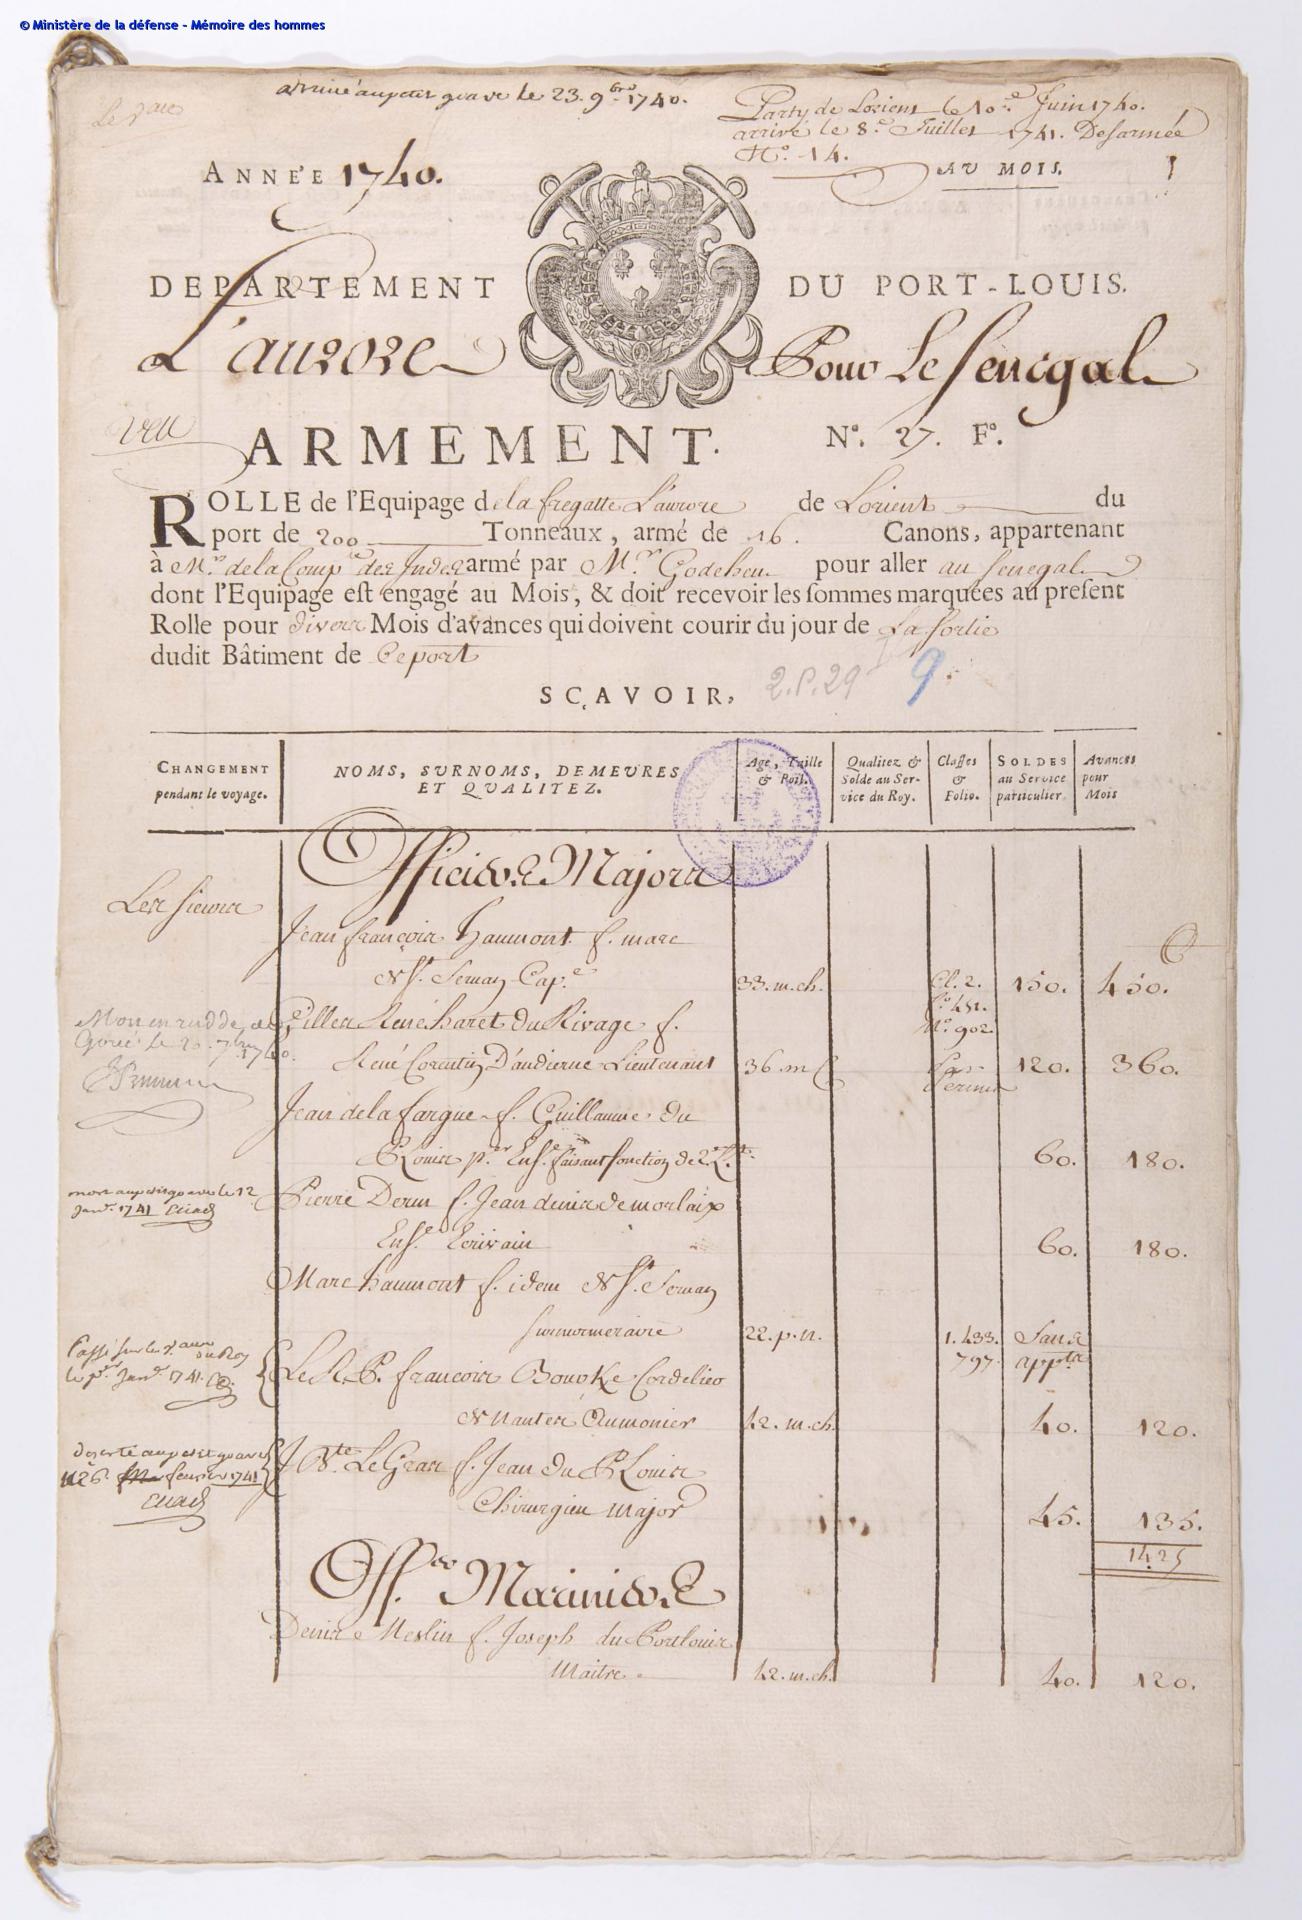 © Ministère de la défense - Mémoire des hommes
arrivé au petit goave le 23. 9bre 1740.
Party de Lorient le 10e Juin 1740.
arrivé le 8e Juillet 1741. Desarmée
No. 14.
ANNÉE 1740.
AU MOIS.
DEPARTEMENT DU PORT-LOUIS.
L'aurore Pour Le Senegal
Veu
ARMEMENT. No. 27. Fo.
ROLLE de l'Equipage de la fregatte L'aurore de Lorient du
port de 200 Tonneaux, armé de 16. Canons, appartenant
à Mrs. de la Compe. des Indes armé par Mr. Godeheu pour aller au senegal
dont l'Equipage est engagé au Mois, & doit recevoir les sommes marquées au present
Rolle pour divers Mois d'avances qui doivent courir du jour de La sortie
dudit Bâtiment de Ce port
SÇAVOIR,
2.P.29 9.
CHANGEMENT pendant le voyage.
NOMS, SURNOMS, DEMEURES ET QUALITEZ.
Age, Taille & Poil.
Qualitez & Solde au Service du Roy.
Classes & Folio.
SOLDES au Service particulier.
Avances pour Mois
Officiers Majors
Les sieurs
Jean françois haumont f. marc
de St. Servan Cape. 33. m. ch. Cl. 2. 150. 450.
fo. 451.
No. 902
Gilles René haret du Rivage f.
Mort en rade de
Gorée le 20. 7bre 1740.
René Corentin D'audierne Lieutenant 36. m 120. 360.
Jean de la fargue f. Guillaume du
P Louis per. Ense. faisant fonction de 2e. Lt. 60. 180.
mort au petit goave le 12
Janv. 1741
Pierre Derm f. Jean denis de morlaix
Ense. Ecrivain 60. 180.
Marc haumont f. idem de St. Servan
surnumeraire 22. p. n. 1. 433. Sans
797. appts
Passé sur le vau
du Roy
le pr. Janvr. 1741.
Le R. P. francois Bourke Cordelier
de Nantes Aumonier 42. m. ch. 40. 120.
deserté au petit goave
le 26. fevrier 1741
J Bte. Le Gras f. Jean du P Louis
Chirurgien major 45. 135.
1425
Offers Mariniers
Denis Meslin f. Joseph du Portlouis
Maitre. 42. m. ch. 40. 120.